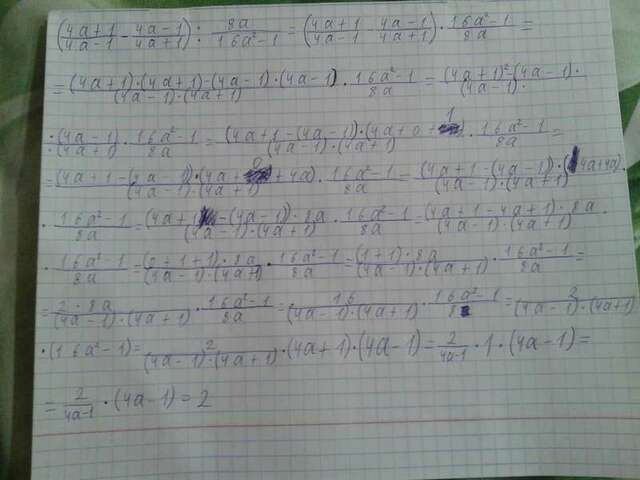 ((4a+1)/(4a-1) - (4a-1)/(4a+1)) : 8a/(16a²-1) = ((4a+1)/(4a-1) - (4a-1)/(4a+1)) · (16a²-1)/(8a) =
= ((4a+1)·(4a+1)-(4a-1)·(4a-1))/((4a-1)·(4a+1)) · (16a²-1)/(8a) = ((4a+1)²-(4a-1)·)/((4a-1)·
·(4a-1)/(4a+1) · (16a²-1)/(8a) = ((4a+1-(4a-1))·(4a+0+1))/((4a-1)·(4a+1)) · (16a²-1)/(8a) =
= ((4a+1-(4a-1))·(4a+0+4a))/((4a-1)·(4a+1)) · (16a²-1)/(8a) = ((4a+1-(4a-1))·(4a+4a))/((4a-1)·(4a+1)) ·
· (16a²-1)/(8a) = ((4a+1-(4a-1))·8a)/((4a-1)·(4a+1)) · (16a²-1)/(8a) = ((4a+1-4a+1)·8a)/((4a-1)·(4a+1)) ·
· (16a²-1)/(8a) = ((0+1+1)·8a)/((4a-1)·(4a+1)) · (16a²-1)/(8a) = ((1+1)·8a)/((4a-1)·(4a+1)) · (16a²-1)/(8a) =
= (2·8a)/((4a-1)·(4a+1)) · (16a²-1)/(8a) = 16/((4a-1)·(4a+1)) · (16a²-1)/8 = 2/((4a-1)·(4a+1))
·(16a²-1) = 2/((4a-1)·(4a+1)) ·(4a+1)·(4a-1) = 2/(4a-1) · 1 · (4a-1) =
= 2/(4a-1) · (4a-1) = 2